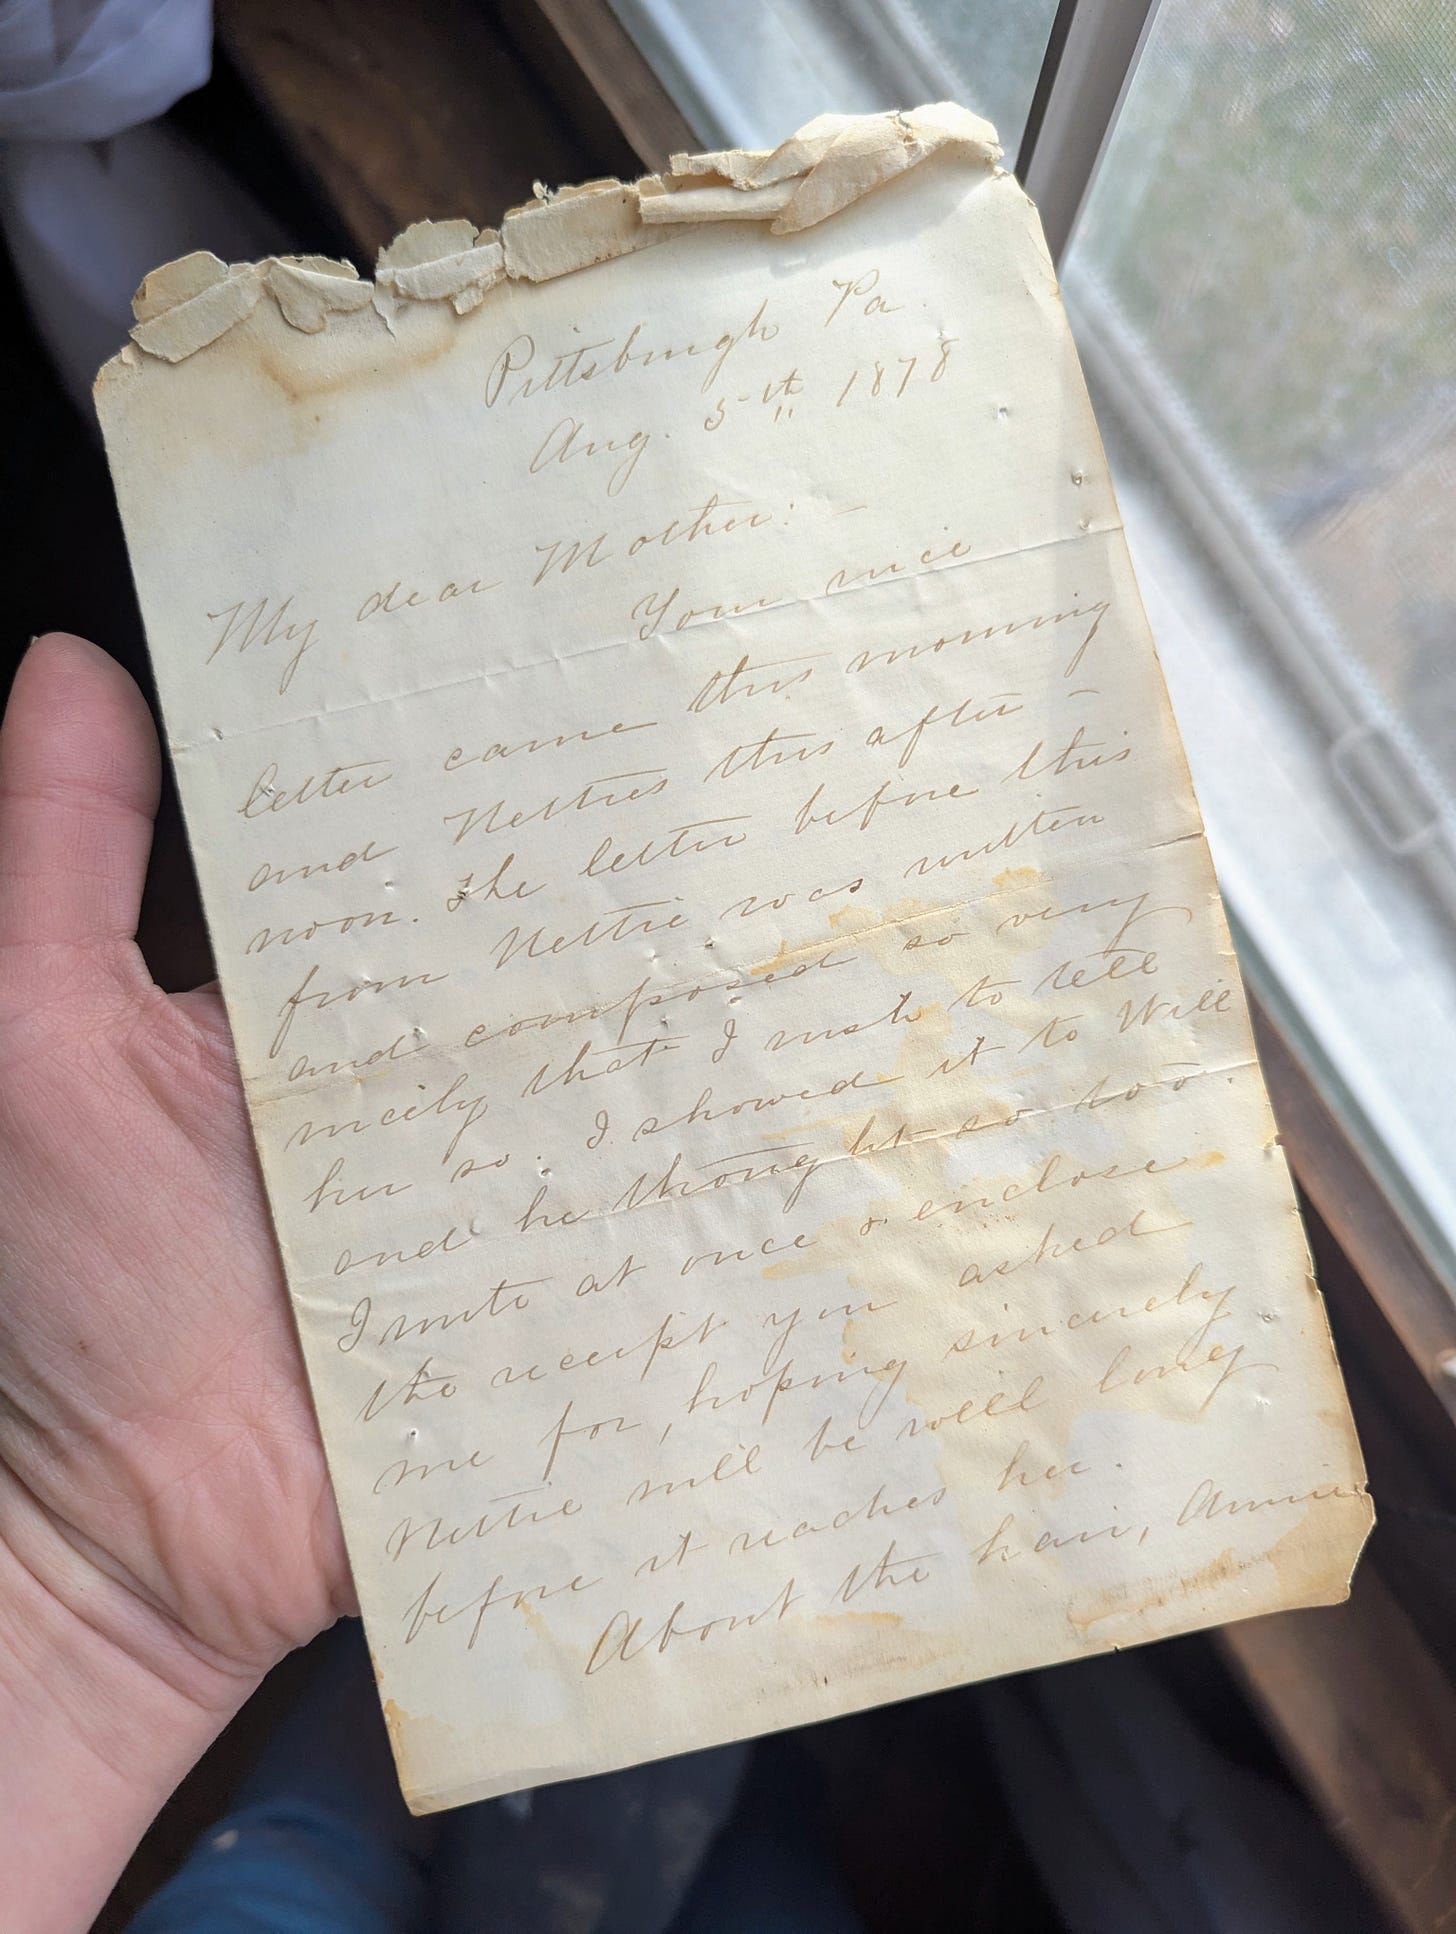 Pittsburgh Pa.
Aug. 5th 1878
My dear Mother: —
Your nice
letter came this morning
and Netties this after-
noon. The letter before this
from Nettie was written
and composed so very
nicely that I wish to tell
her so. I showed it to Will
and he thought so too.
I write at once & enclose
the receipt you asked
me for, hoping sincerely
Nettie will be well long
before it reaches her.
About the hair, Annie